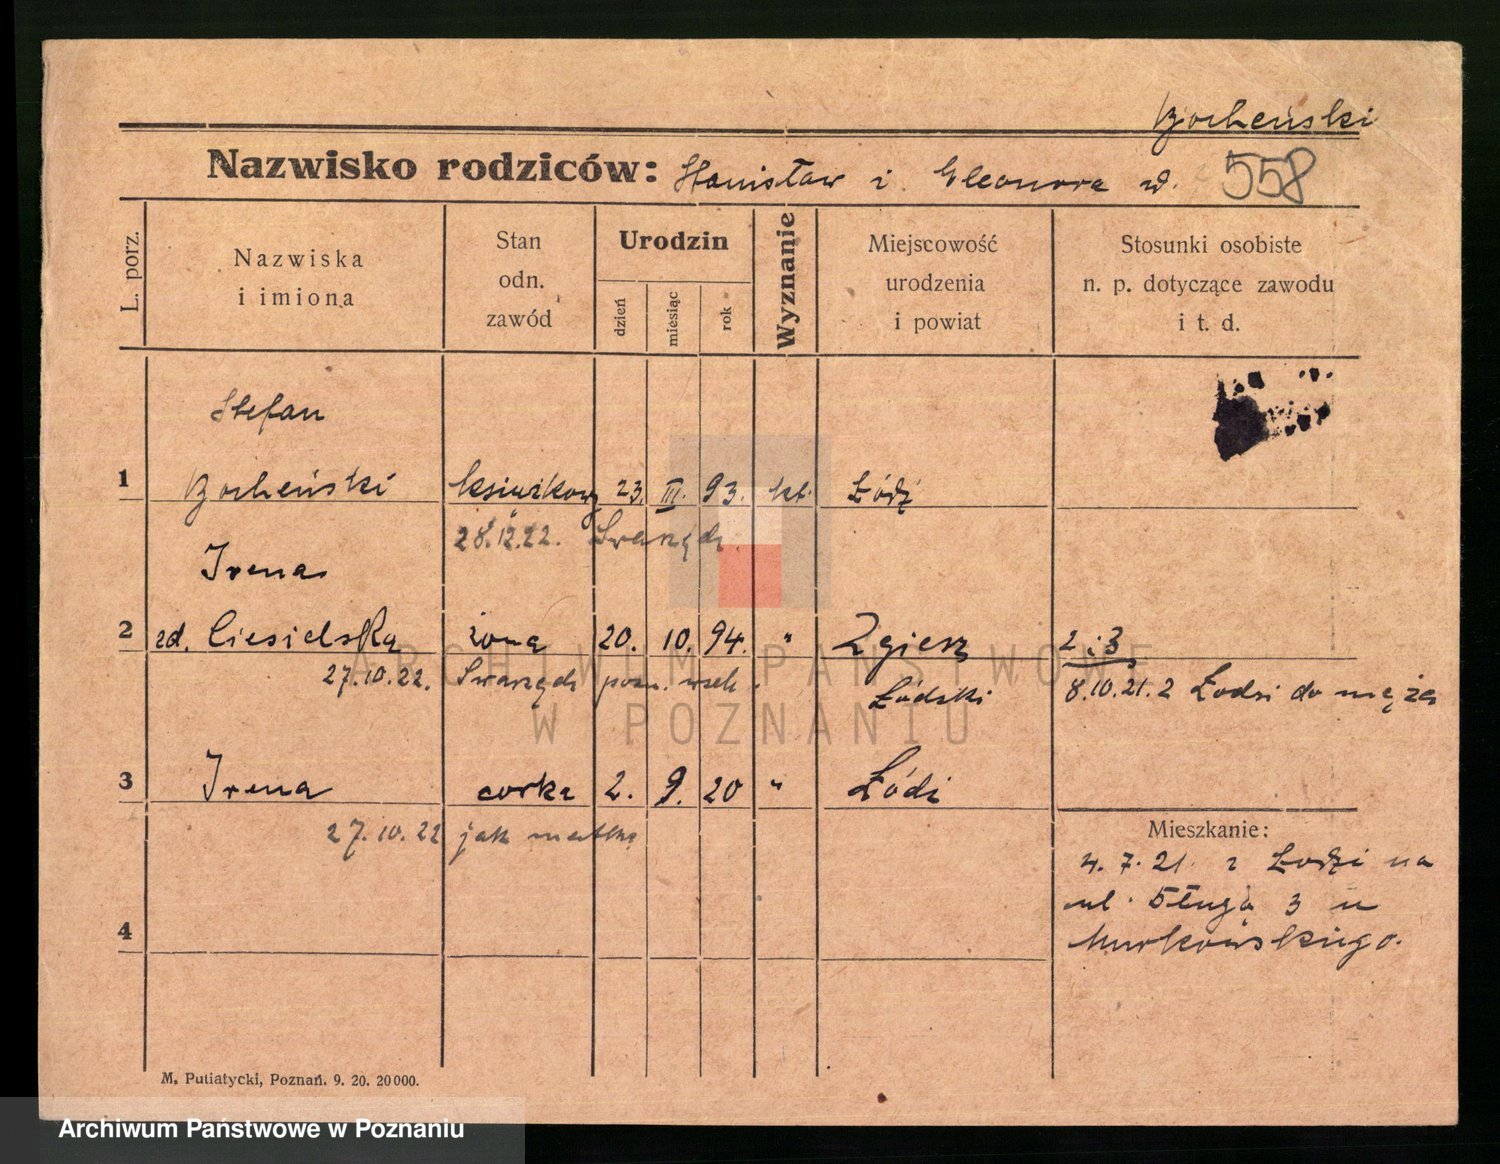 Bocheński
Nazwisko rodziców: Stanisław i Eleonora
558
L. porz.
Nazwiska
i imiona
Stan
odn.
zawód
Urodzin
dzień
miesiąc
rok
Wyznanie
Miejscowość
urodzenia
i powiat
Stosunki osobiste
n. p. dotyczące zawodu
i t. d.
Stefan
1 Bocheński 23. III. 93. kt. Łódź
28.12.22. Swarzędz
Irena
2 zd. Ciesielska żona 20. 10. 94. " Zgierz 2 i 3
27.10.22. Swarzędz pozn. wsch. Łódzki 8.10.21. z Łodzi do męża
3 Irena corka 2. 9. 20 " Łódź
27.10.22 jak matka
Mieszkanie:
4. 7. 21. z Łodzi na
ul. Długa 3 u
Murkowskiego.
4
M. Putiatycki, Poznań. 9. 20. 20000.
ARCHIWUM PAŃSTWOWE
W POZNANIU
Archiwum Państwowe w Poznaniu